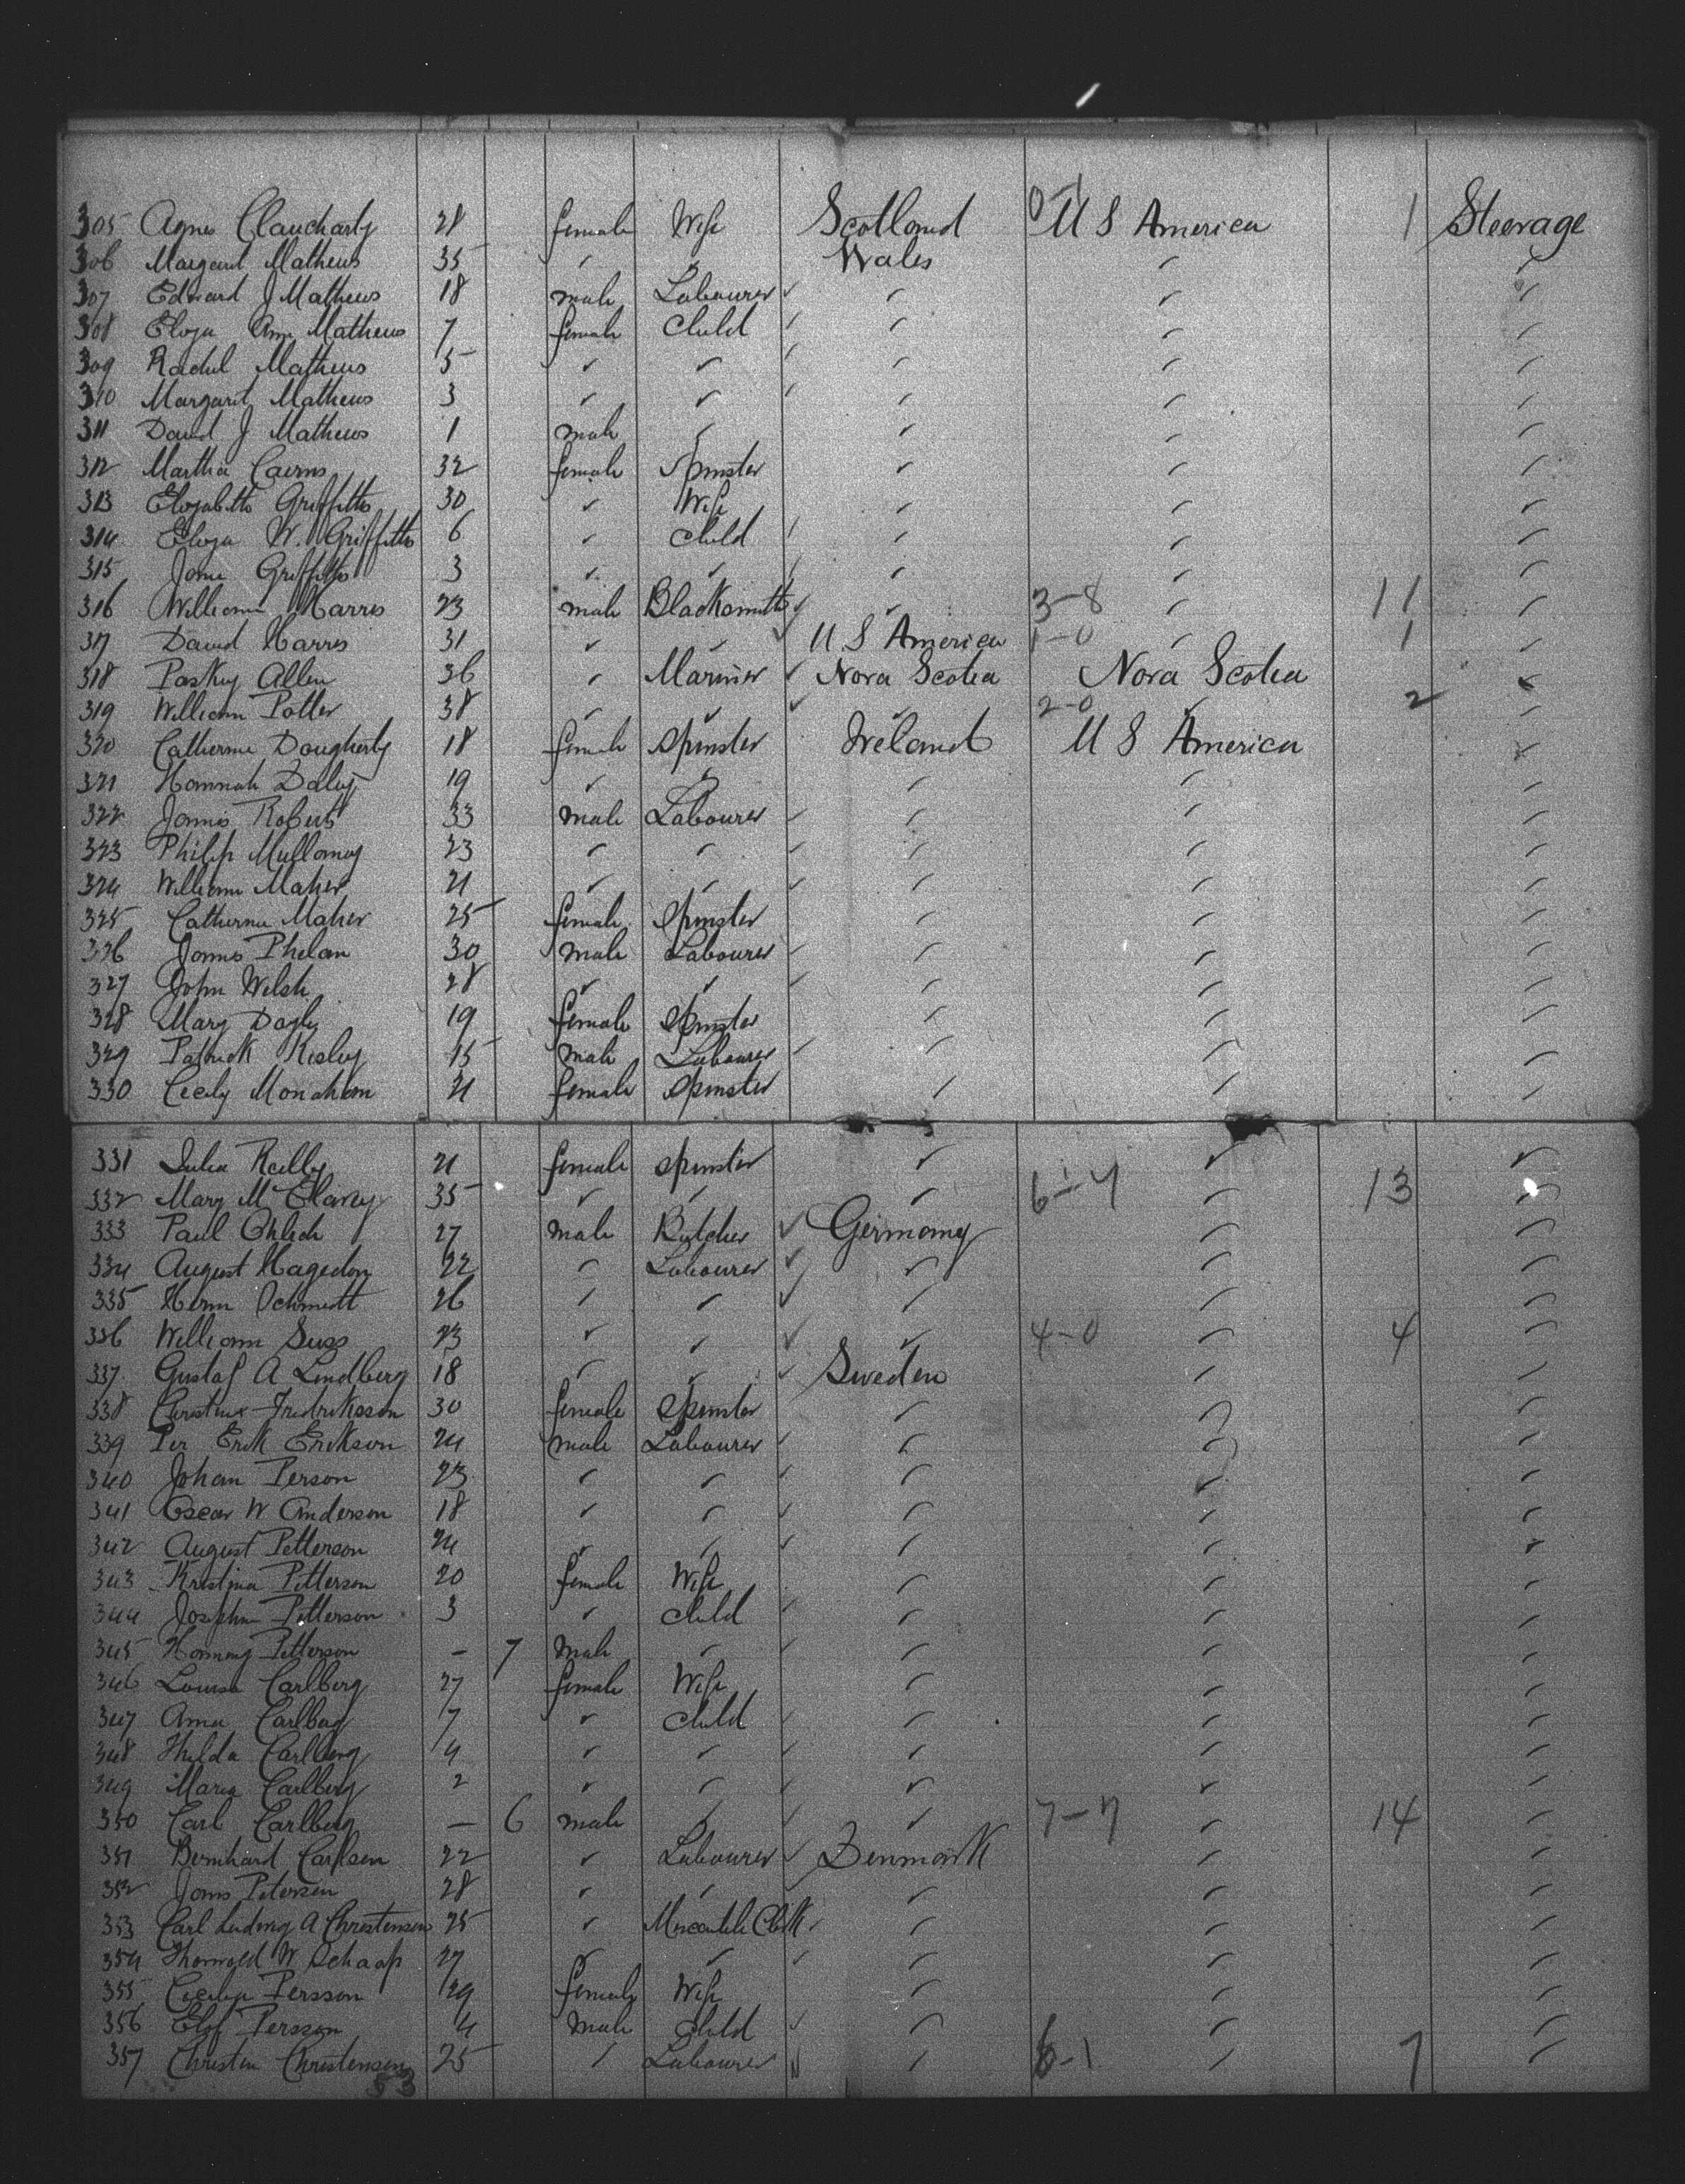 305 Agnes Claucharty 28 female Wife Scotland 0-1 U S America 1 Steerage
306 Margaret Mathews 35 " " Wales " "
307 Edward J Mathews 18 male Labourer " " "
308 Eliza Ann Mathews 7 female Child " " "
309 Rachel Mathews 5 " " " " "
310 Margaret Mathews 3 " " " " "
311 David J Mathews 1 male " " " "
312 Martha Cairns 32 female Spinster " " "
313 Elizabeth Griffiths 30 " Wife " " "
314 Eliza W. Griffiths 6 " Child " " "
315 Jane Griffiths 3 " " " " "
316 William Harris 23 male Blacksmith " 3-8 " 11 "
317 David Harris 31 " " U S America 1-0 " 1 "
318 Allen 36 " Mariner Nova Scotia Nova Scotia "
319 William Potter 38 " " " 2-0 " 2 "
320 Catherine Dougherty 18 female Spinster Ireland U S America "
321 Hannah Daley 19 " " " " "
322 James Robert 33 male Labourer " " "
323 Philip Mullomay 23 " " " " "
324 William Maher 21 " " " " "
325 Catherine Maher 25 female Spinster " " "
326 James Phelan 30 male Labourer " " "
327 John Welsh 28 " " " " "
328 Mary 19 female Spinster " " "
329 Patrick 15 male Labourer " " "
330 Cecily Monahan 21 female Spinster " " "
331 Julia Reilly 21 female Spinster " " "
332 Mary M 35 " " " 6-7 " 13 "
333 Paul 27 male Butcher Germany " "
334 August Hagedon 22 " Labourer " " "
335 Herm Schmidt 26 " " " " "
336 William Suss 23 " " " 4-0 " 4 "
337 Gustaf A Lindberg 18 " " Sweden " "
338 Christine Fredriksson 30 female Spinster " " "
339 Per Erik Erikson 24 male Labourer " " "
340 Johan Person 23 " " " " "
341 Oscar W Anderson 18 " " " " "
342 August Petterson 24 " " " " "
343 Kristina Petterson 20 female Wife " " "
344 Josephine Petterson 3 " Child " " "
345 Petterson - 7 male " " " "
346 Louisa Carlberg 27 female Wife " " "
347 Anna Carlberg 7 " Child " " "
348 Hulda Carlberg 4 " " " " "
349 Maria Carlberg 2 " " " " "
350 Carl Carlberg - 6 male " " 7-7 " 14 "
351 Bernhard Carlsen 22 " Labourer Denmark " "
352 Petersen 28 " " " " "
353 Carl Ludwig A Christensen 25 " Mercantile Clerk " " "
354 Thorwald W Schaap 27 " " " " "
355 Cecilie Persson 29 female Wife " " "
356 Elof Persson 4 male Child " " "
357 Christen Christensen 25 " Labourer " 6-1 " 7 "
53